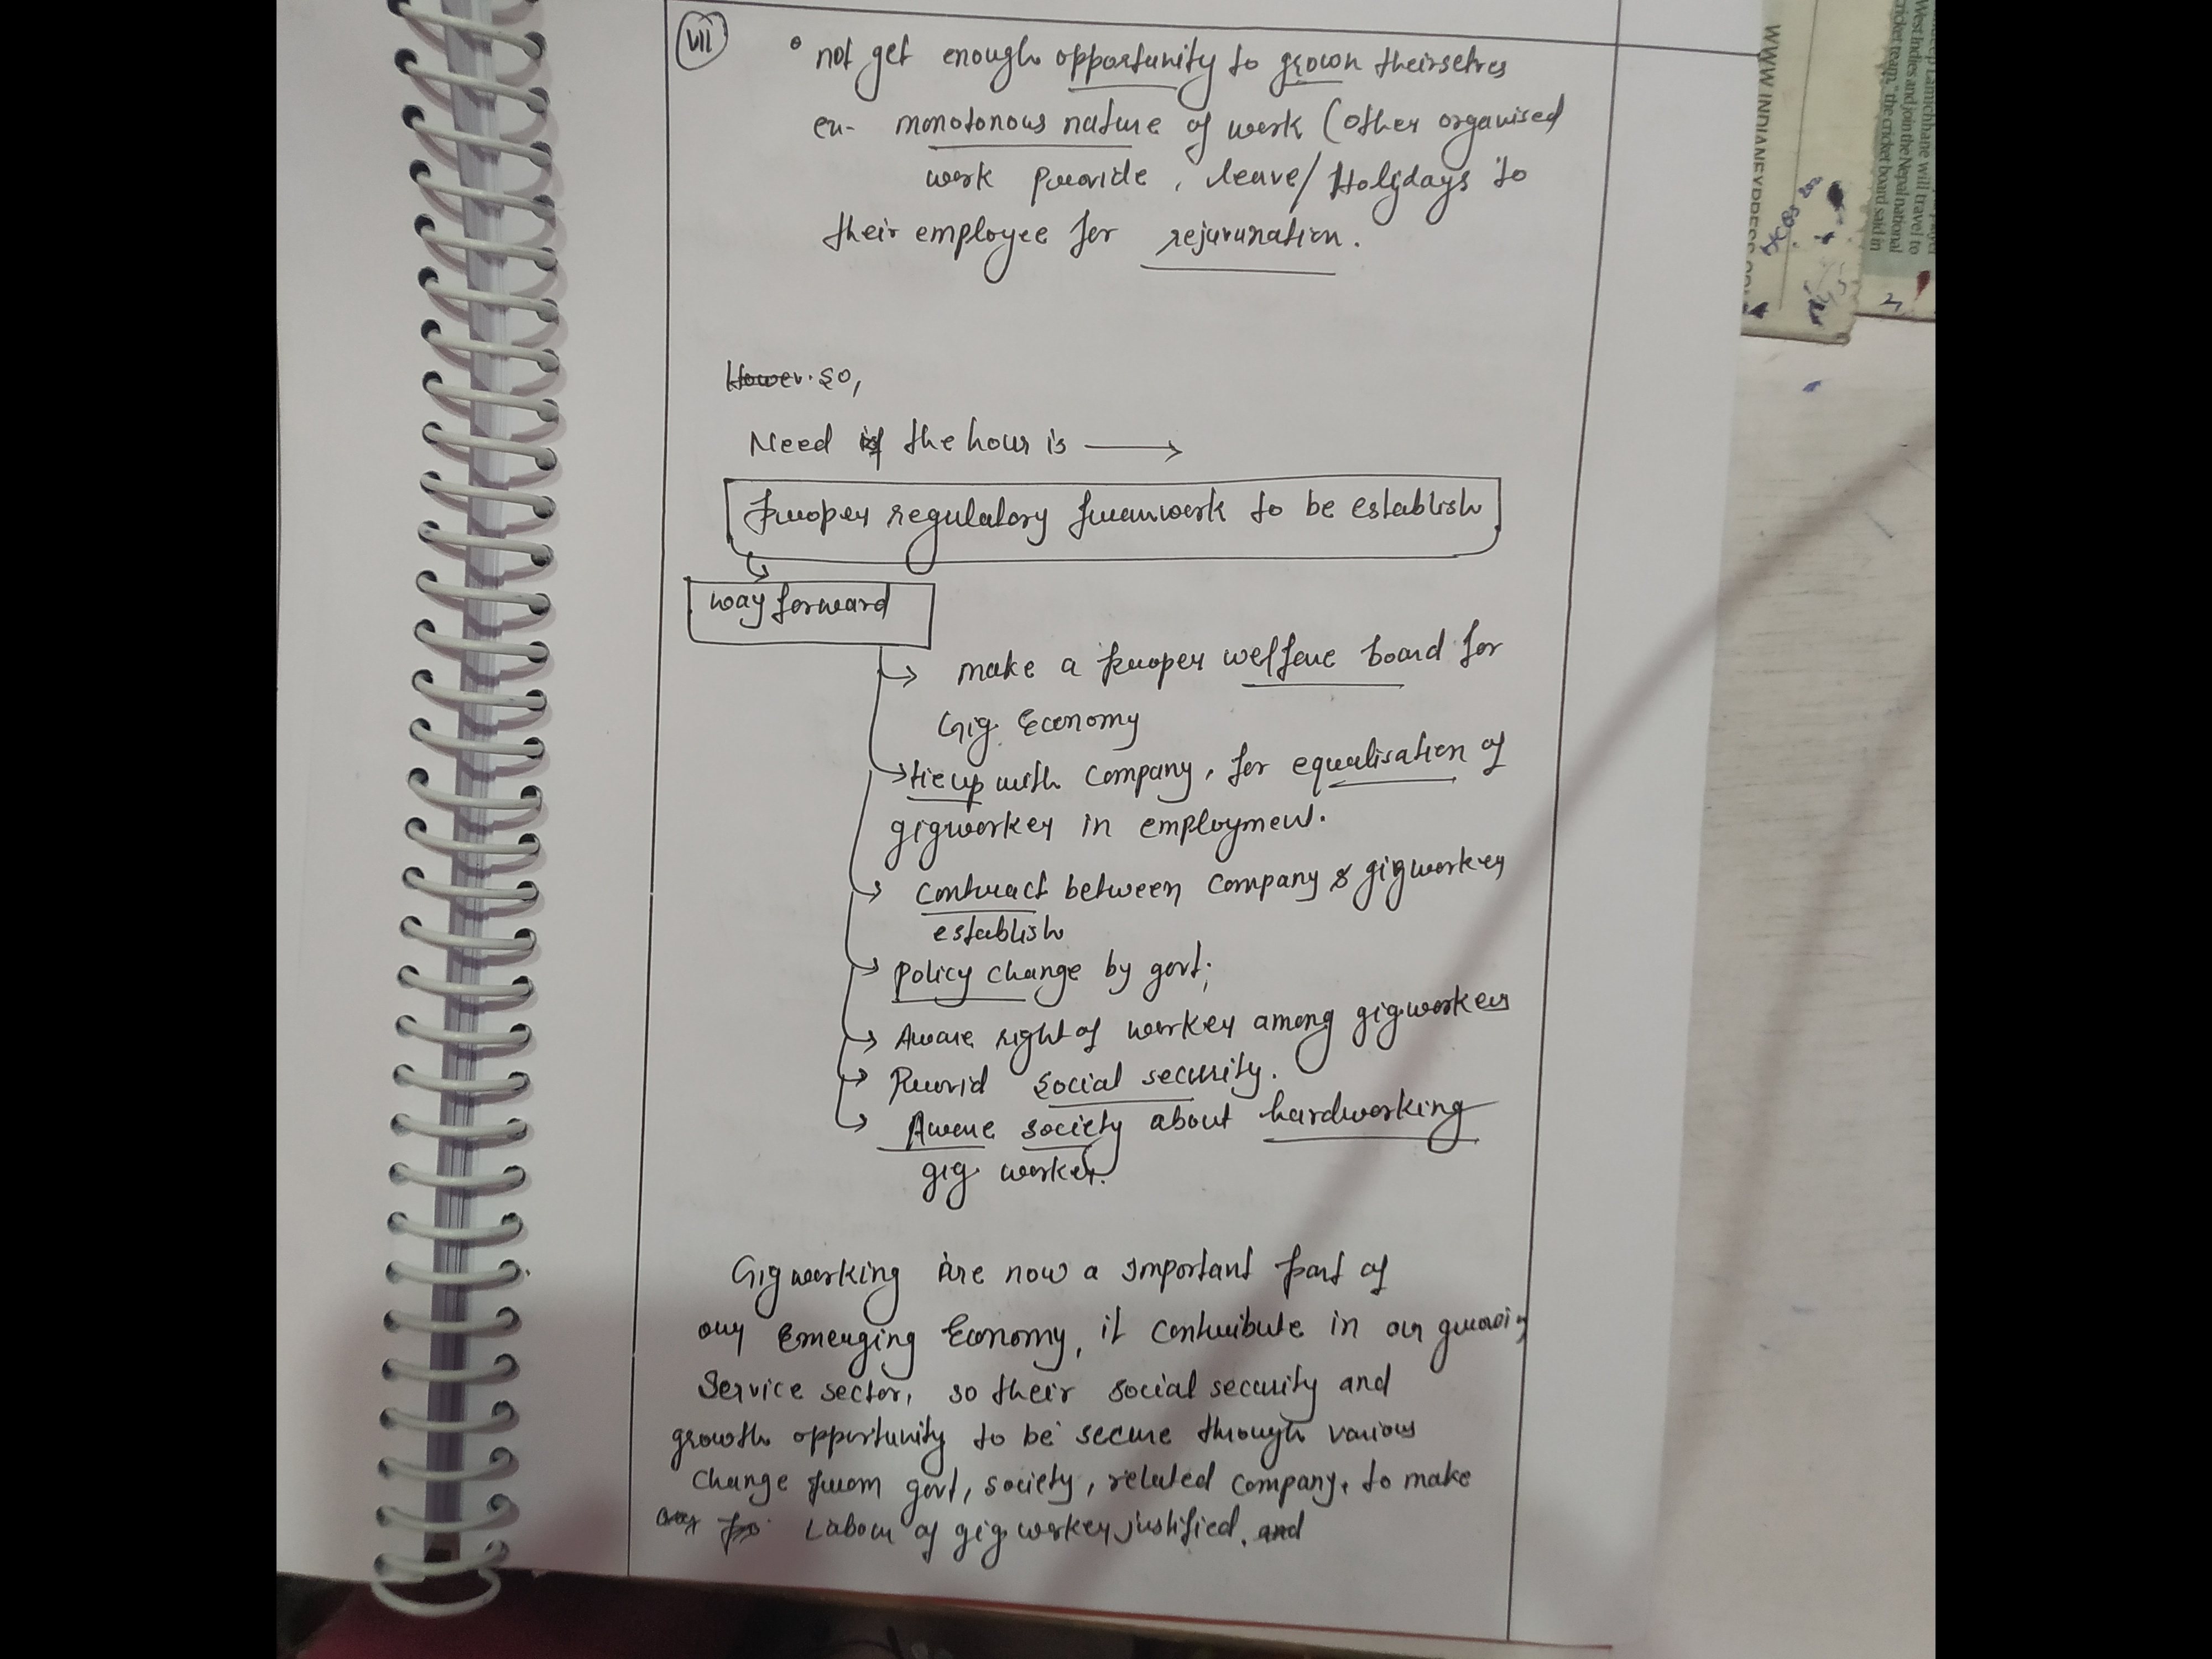 VII
• not get enough opportunity to grown theirselves
ex- monotonous nature of work (other organised
work provide, leave/Holidays to
their employee for rejuvunation.
Hower. so,
Need of the hour is →
proper regulatory framwork to be establish
way forward
→ make a proper welfare board for
Gig. Economy
→ tieup with company, for equalisation of
gigworker in employment.
→ contract between company & gigworker
establish
→ policy change by govt;
→ Aware right of worker among gigworkers
→ Provid social security.
→ Aware society about hardworking
gig worker.
Gigworking are now a important part of
our Emerging Economy, it contribute in our
Service sector, so their social security and
growth opportunity to be secure through various
change from govt, society, related company, to make
Labour of gig worker justified. and
WWW.INDIANEXPRESS.
Lamichhane will travel to
West Indies and join the Nepal national
cricket team," the cricket board said in